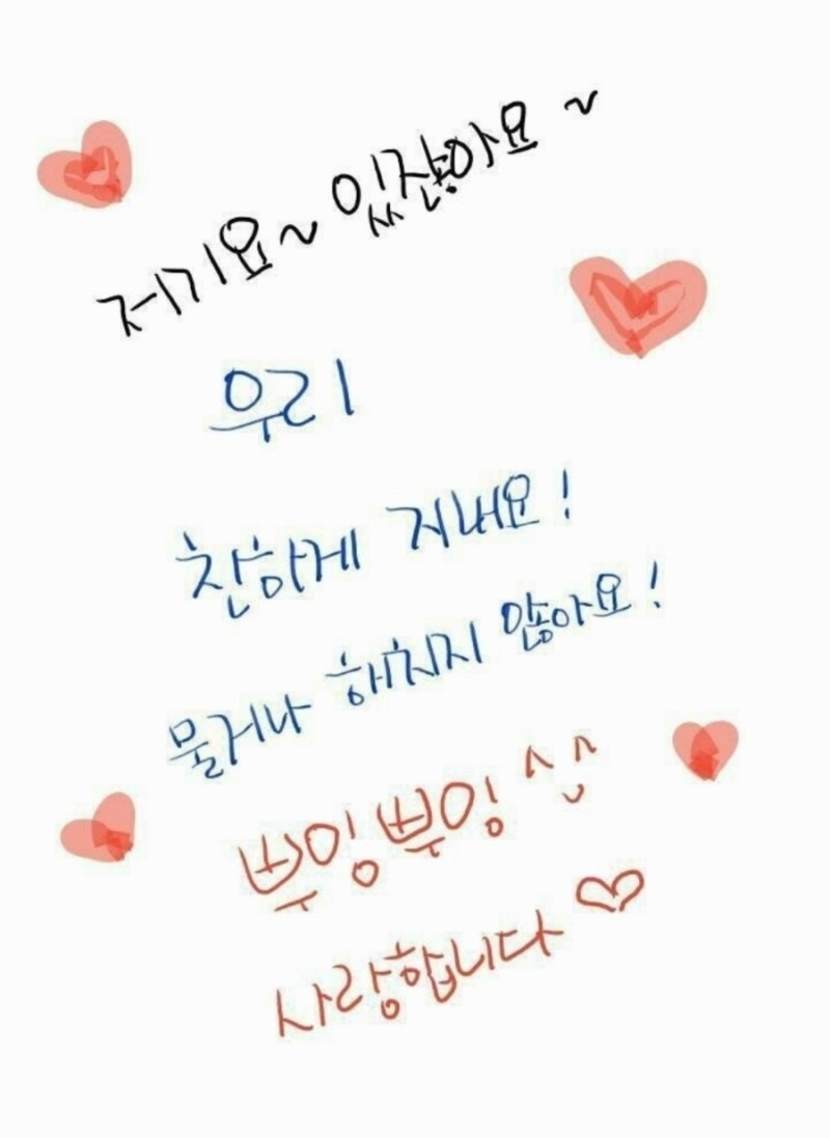 저기요~ 있잖아요~
우리
친하게 지내요!
물거나 해치지 않아요!
뿌잉뿌잉 ^_^
사랑합니다 ♡